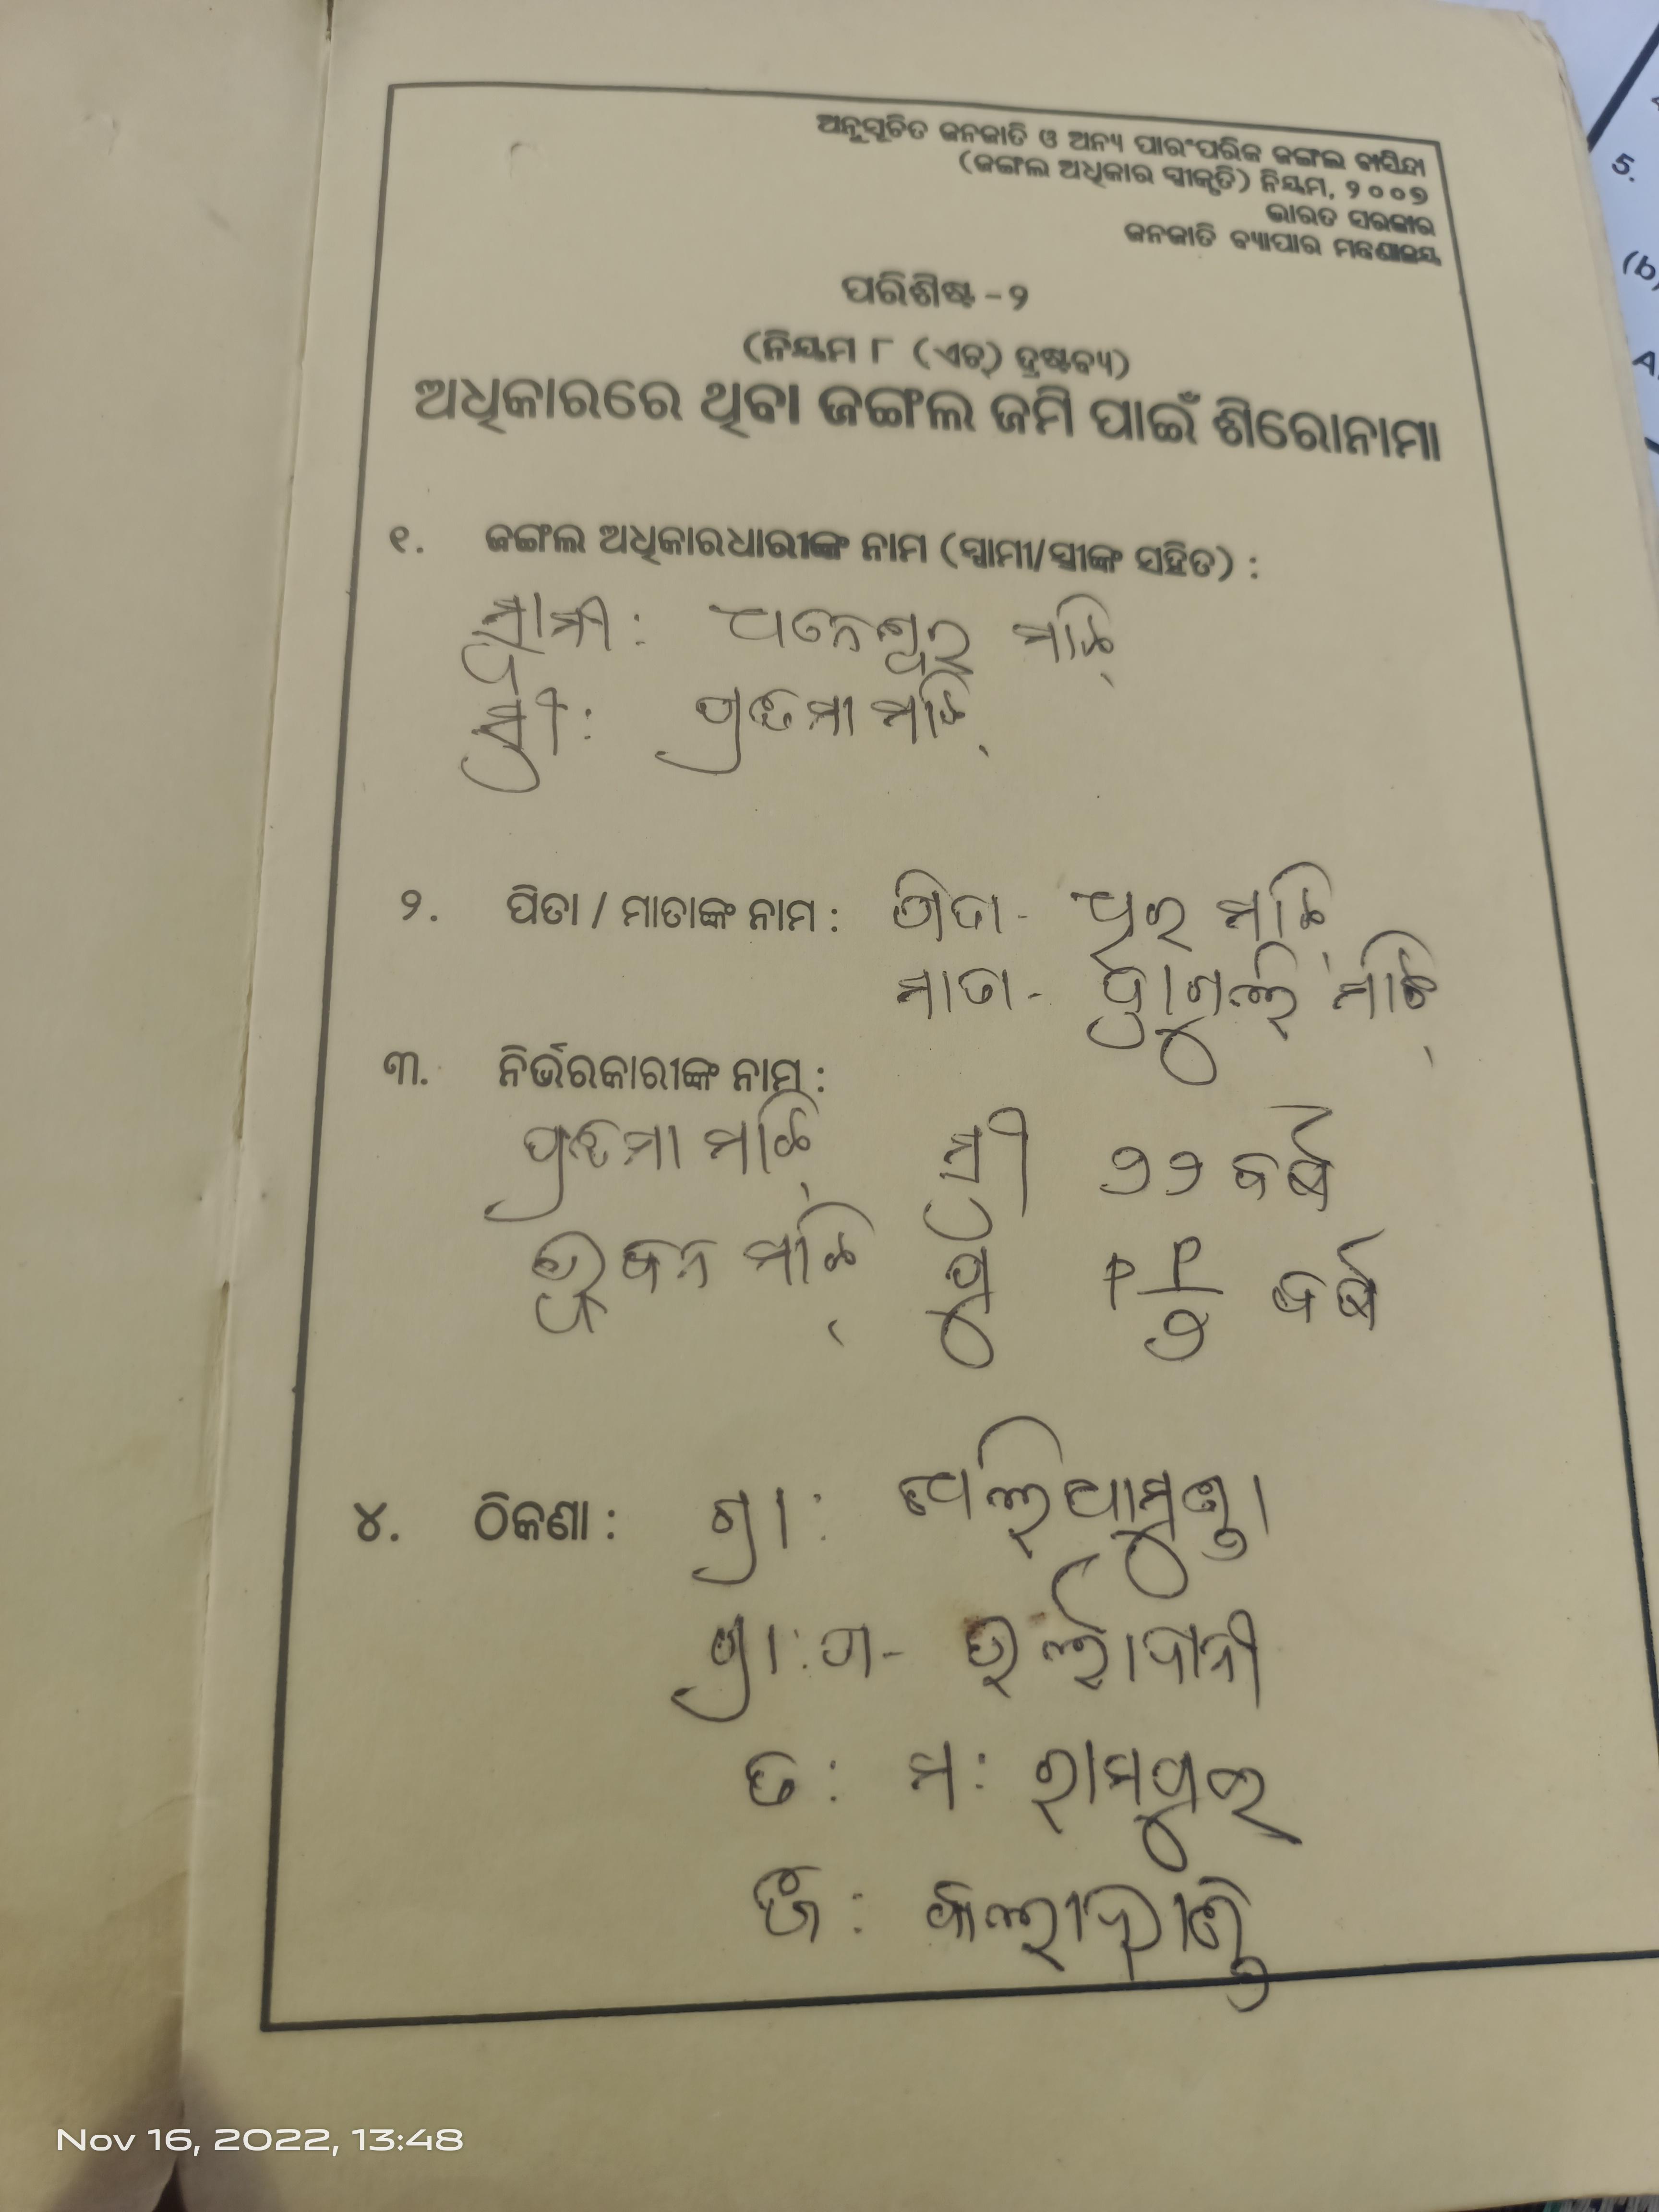 ଅନୁସୂଚିତ ଜନଜାତି ଓ ଅନ୍ୟ ପାରଂପରିକ ଜଙ୍ଗଲ ବାସିନ୍ଦା
(ଜଙ୍ଗଲ ଅଧିକାର ସ୍ୱୀକୃତି) ନିୟମ, ୨୦୦୭
ଭାରତ ସରକାର
ଜନଜାତି ବ୍ୟାପାର ମନ୍ତ୍ରଣାଳୟ
ପରିଶିଷ୍ଟ - ୨
(ନିୟମ ୮ (ଏଚ୍) ଦ୍ରଷ୍ଟବ୍ୟ)
ଅଧିକାରରେ ଥିବା ଜଙ୍ଗଲ ଜମି ପାଇଁ ଶିରୋନାମା
୧. ଜଙ୍ଗଲ ଅଧିକାରଧାରୀଙ୍କ ନାମ (ସ୍ୱାମୀ/ସ୍ତ୍ରୀଙ୍କ ସହିତ) :
ସ୍ୱାମୀ: ଧନେଶ୍ୱର ମାଝି
ସ୍ତ୍ରୀ: ମାଝି
୨. ପିତା / ମାତାଙ୍କ ନାମ : ପିତା - ମାଝି
ମାତା - ମାଝି
୩. ନିର୍ଭରକାରୀଙ୍କ ନାମ :
ମାଝି ସ୍ତ୍ରୀ ୨୨ ବର୍ଷ
ମାଝି ପୁ ବର୍ଷ
୪. ଠିକଣା : ଗ୍ରା:
ଗ୍ରା:ପ -
ତ: ମ: ରାମପୁର
ଜି: କଳାହାଣ୍ଡି
Nov 16, 2022, 13:48
5.
(b)
A